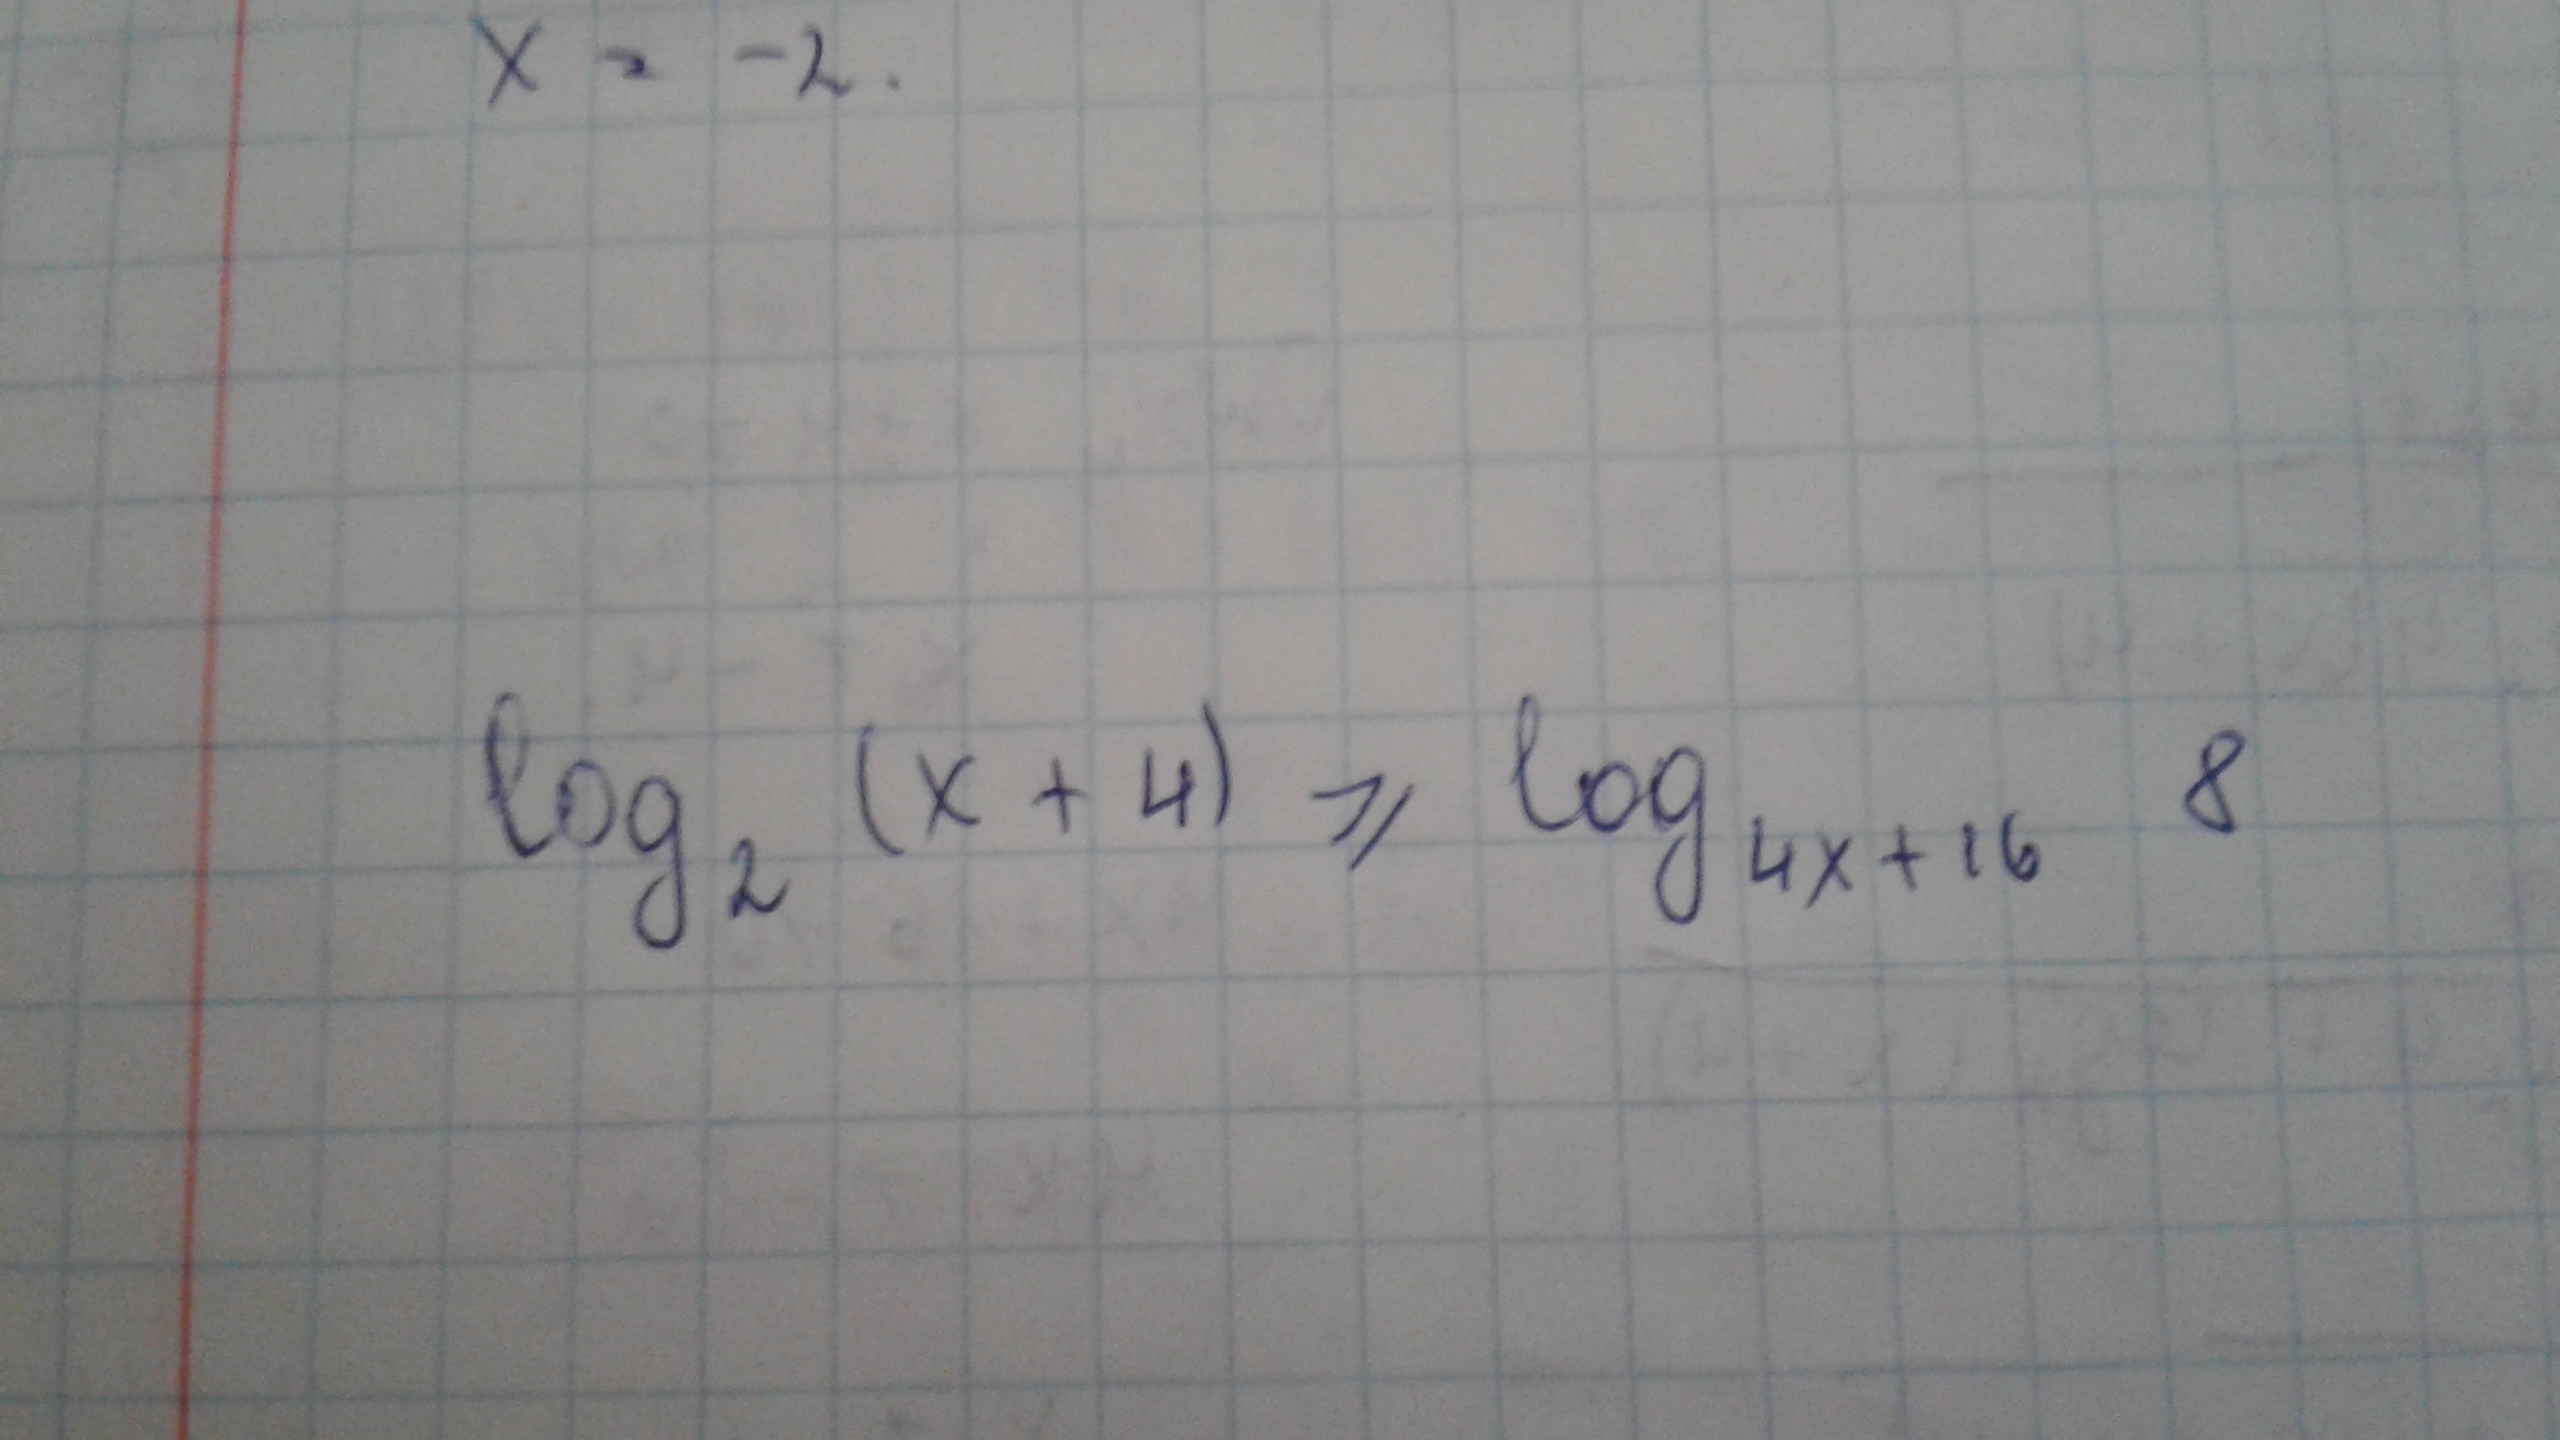 x = -2.
log₂ (x + 4) ⩾ log₄ₓ₊₁₆ 8